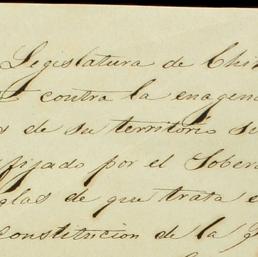 Legislatura de Chi
contra la enagen
s de su territorio se
fijado por el Sober
glas de que trata e
constitucion de la